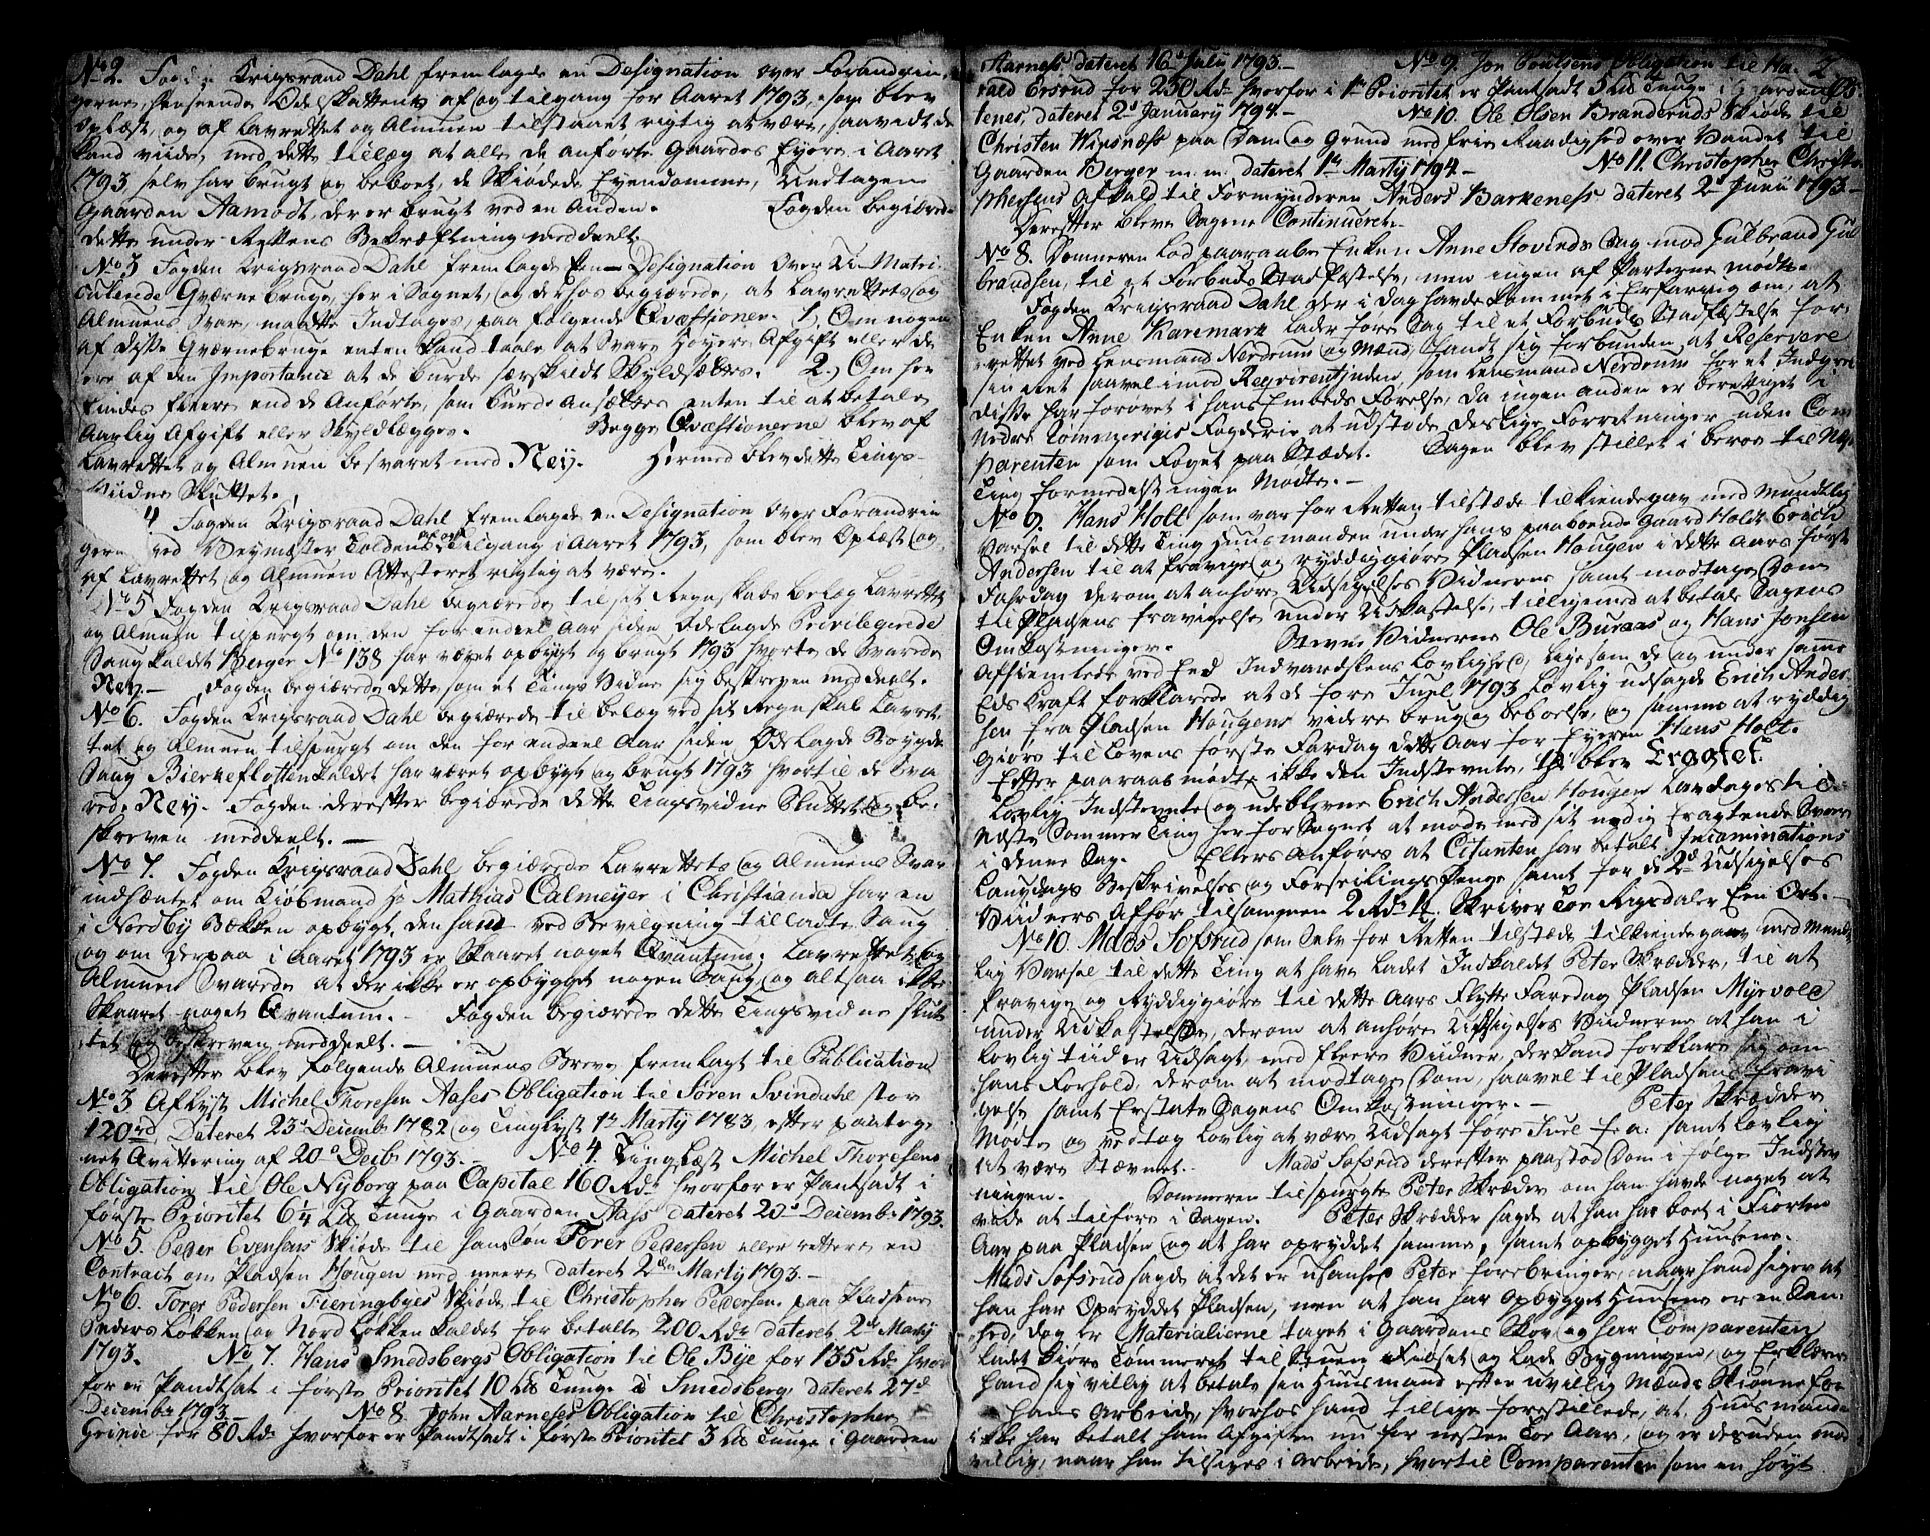 No 2. Fogden Krigsraad Dahl fremlagde en Designation over Forandrin-
gerne henseende Odelskattens af og tilgang for Aaret 1793, som blev
oplæst, og af Lavrettet og Almuen tilstaaet rigtig at være, saavidt de
kand viide, med dette tillæg at alle de anførte Gaardes Eyere i Aaret
1793 selv har brugt og beboet, de Skiødede Eyendomme, Undtagen
Gaarden Aamodt, der er brugt ved en Anden. Fogden begiærede
dette under Rettens Bekræftning meddeelt.
No 3 Fogden Krigsraad Dahl fremlagde Een Designation Over U-Matri-
culerede Qværnebruge, her i Sognet, og derhos begiærede, at Lavrettets og
Almuens Svar, maatte Indtages, paa følgende Qvæstioner. 1, Om nogen
af disse Qværnebruge enten kand taale at Svare Høyere Afgift eller de
ere af den Importance at de burde særskildt Skyldsættes. 2.) Om her
findes fleere end de Anførte, som burde ansættes enten til at betale
Aarlig Afgift eller Skyldlægges. Begge Qvæstionerne blev af
Lavrettet og Almuen besvaret med Ney. Hermed blev dette Tings-
Viidne Sluttet.
4 Fogden Krigsraad Dahl fremlagde en Designation over Forandrin
gerne ved Veymæster Toldens af og Tilgang i Aaret 1793, som blev Oplæst og
af Lavrettet og Almuen Attesteret rigtig at være.
No 5 Fogden Krigsraad Dahl begiærede til sit Regnskabs belæg Lavrettet
og Almuen tilspurgt om den for endeel Aar siden Ødelagde Privilegerede
Saug kaldet Berger No 138 har været opbygt og brugt 1793 hvortil de Svarede
Ney. Fogden begiærede dette, som et Tings Vidne sig beskreven meddeelt.
No 6. Fogden Krigsraad Dahl begiærede til belæg ved sit Regnskab Lavret-
tet og Almuen tilspurgt om den for endeel Aar siden Ødelagde Boygde
Saug Bierkefløtten kaldet har været opbygt og brugt 1793 hvortil de Sva
rede Ney. Fogden derefter begiærede dette Tingsvidne Sluttet og be-
skreven meddeelt.
No 7. Fogden Krigsraad Dahl begiærede Lavrettets og Almuens Svar
indhæntet om Kiøbmand Hr Mathias Calmeyer i Christiania har en
i Nordby Bækken opbygt, den ham ved Bevilgning tilladte Saug
og om derpaa i Aaret 1793 er Skaaret noget Qvantum. Lavrettet og
Almuen Svarede at der ikke er opbygget nogen Saug og altsaa ikke
Skaaret noget Qvantum. Fogden begiærede dette Tingsvidne Slut
tet og beskreven meddeelt.
Derefter blev følgende Almuens Breve fremlagt til Publication
No 3 Aflyst Michel Thoresen Aases Obligation til Søren Svindahl stor
120 rd, Dateret 23 Decemb 1782 og Tinglyst 1 Marty 1783, efter paateg-
net Qvittering af 20 Decbr 1793. No 4. Ting Læst Michel Thoresens
Obligation til Ole Nyborg paa Capital 160 Rdr hvorfor er Pantsadt i
første Prioritet 6 1/4 Lis Tunge i Gaarden Aass dateret 20 Decembr 1793.
No 5. Peder Evensens Skiøde til hans Søn Torer Pedersen eller rettere en
Contract om Pladsen Hougen med meere dateret 2den Marty 1793.
No 6. Torer Pedersen Fieringbyes Skiøde, til Christopher Pedersen paa Pladsene
Søders Løkken og Nord Løkken kaldet for betalte 200 Rdr dateret 2 Marty
1793. No 7. Hans Smedsbergs Obligation til Ole Bye for 135 Rdr hvor
for er Pandtsat i første Prioritet 10 Lis Tunge i Smedsberg, dateret 27
December 1793. No 8. John Aarnesses Obligation til Christopher
Grinde for 80 Rdr hvorfor er Pandtsadt i første Prioritet 3 Lis Tunge i Gaarden
Aarness. dateret 16 July 1793. No 9. Jon Poulsens Obligation til Ha- 2
rald Ersrud for 250 Rdr hvorfor i 1te Prioritet er Pantsadt 5 Lis Tunge i Gaarden
tenes, dateret 2 January 1794. No 10. Ole Olsen Branderuds Skiøde til
Christen Wigsnæss paa Dam og Grund med frie Raadighed over Vandet til
Gaarden Berger m: m: dateret 1te Marty 1794. No 11. Christopher Christo
phersens Afkald til Formynderen Anders Barkeness dateret 2 Junii 1793.
Derefter bleve Sagene Continueret.
No 8. Dommeren lod paaraabe Enken Anne Slovinds Sag mod Gulbrand Gul
brandsen, til et Forbuds Stadfæstelse, men ingen af Parterne mødte.
Fogden Krigsraad Dahl, der i dag havde kommet i Erfaring om, at
Enken Anne Karemark lader føre Sag til et Forbuds Stadfæstelse for-
rettet ved Lensmand Nerdrum og Mænd, fandt sig forbunden at Reservere
sin Ret saavel imod Reqvirentinden, som Lensmand Nerdrum for et Indgreb
disse har forøvet i hans Embeds Førelse, da ingen anden er berettiget i
Nedre Rommerigis Fogderie at udstæde deslige Forretninger uden Com
parenten som Foget paa Stædet. Sagen blev stillet i beroe til Næste
Ting formedelst ingen Mødte.
No 9. Hans Holt som var for Retten tilstæde tilkiendegav med Mundtlig
Varsel til dette Ting Huusmanden under hans paaboende Gaard Holdt Erich
Andersen til at fravige og ryddiggiøre Pladsen Hougen i dette Aars første
Fahrdag derom at anhøre Udsigelses Vidnerne samt modtage Dom
til Pladsens fravigelse under Udkastelse, tilligemed at betale Sagens
Omkostninger. Stevne Vidnerne Ole Buraas og Hans Jonsen
Afhiemlede ved Eed Indvarslens Lovlighed, ligesom de og under samme
Eeds Kraft forklarede at de före Juel 1793 Lovlig udsagde Erich Ander-
sen fra Pladsen Hougens videre brug og beboelse, og samme at ryddig
giøre til Lovens første Fardag dette Aar for Eyeren Hans Holt.
Efter paaraab mødte ikke den Indstevnte, thi blev Eragtet.
Lovlig Indstevnte og udeblevne Erich Andersen Hougen Lavdages til
Næste Sommer Ting her for Sognet at møde med sit nødig eragtende Svar
i denne Sag. Ellers Anføres at Citanten har betalt Incaminations
Laugdags Beskrivelses og Forseilings Penge samt for de 2de Udsigelses
Viidners Afhør tilsammen 2 Rdr 1 Skriver Toe Rigsdaler Een Ort.
No 10. Mads Sofsrud som Selv for Retten tilstæde tilkiendegav med Mundt
lig Varsel til dette Ting at have ladet Indkaldet Peter Skrædder, til at
fravige og Ryddiggiøre til dette Aars Flytte Faredag Pladsen Myrvold
under Udkastelse, derom at anhøre Udsigelses Viidnerne at han i
Lovlig tiid er Udsagt, med fleere Viidner, der kand forklare sig om
hans Forhold, derom at modtage Dom, saavel til Pladsens fravi
gelse samt Erstate Sagens Omkostninger. Peter Skrædder
Mødte og vedtog Lovlig at være Udsagt före Juel f: a: samt Lovlig
til at være Stævnet. Mads Sofsrud derefter paastod Dom i følge Indstev
ningen. Dommeren tilspurgte Peter Skræder om han havde noget at
vide at tilføre i Sagen. Peter Skrædder sagde at han har boet i Fiorten
Aar paa Pladsen og at har opryddet samme, samt opbygget Huusene.
Mads Sofsrud sagde at det er usanhed Peter forebringer, naar hand siger at
han har Opryddet Pladsen, men at han har opbygget Huusene er en San-
hed, dog er Materialierne taget i Gaardens Skov og har Comparenten
ladet kiøre Tømmeret til Stuen Fæhuset og Lade Bygningen, og Erklærer
hand sig villig at betale sin Huusmand efter uvillig Mænds Skiønne for
hans Arbeide, hvorhos hand tillige forestillede, at Huusmanden
ikke har betalt ham Afgiften nu for nesten Toe Aar, og er desuden mod
villig, naar han tilsiges i Arbeide, hvortil Comparenten som en høyt